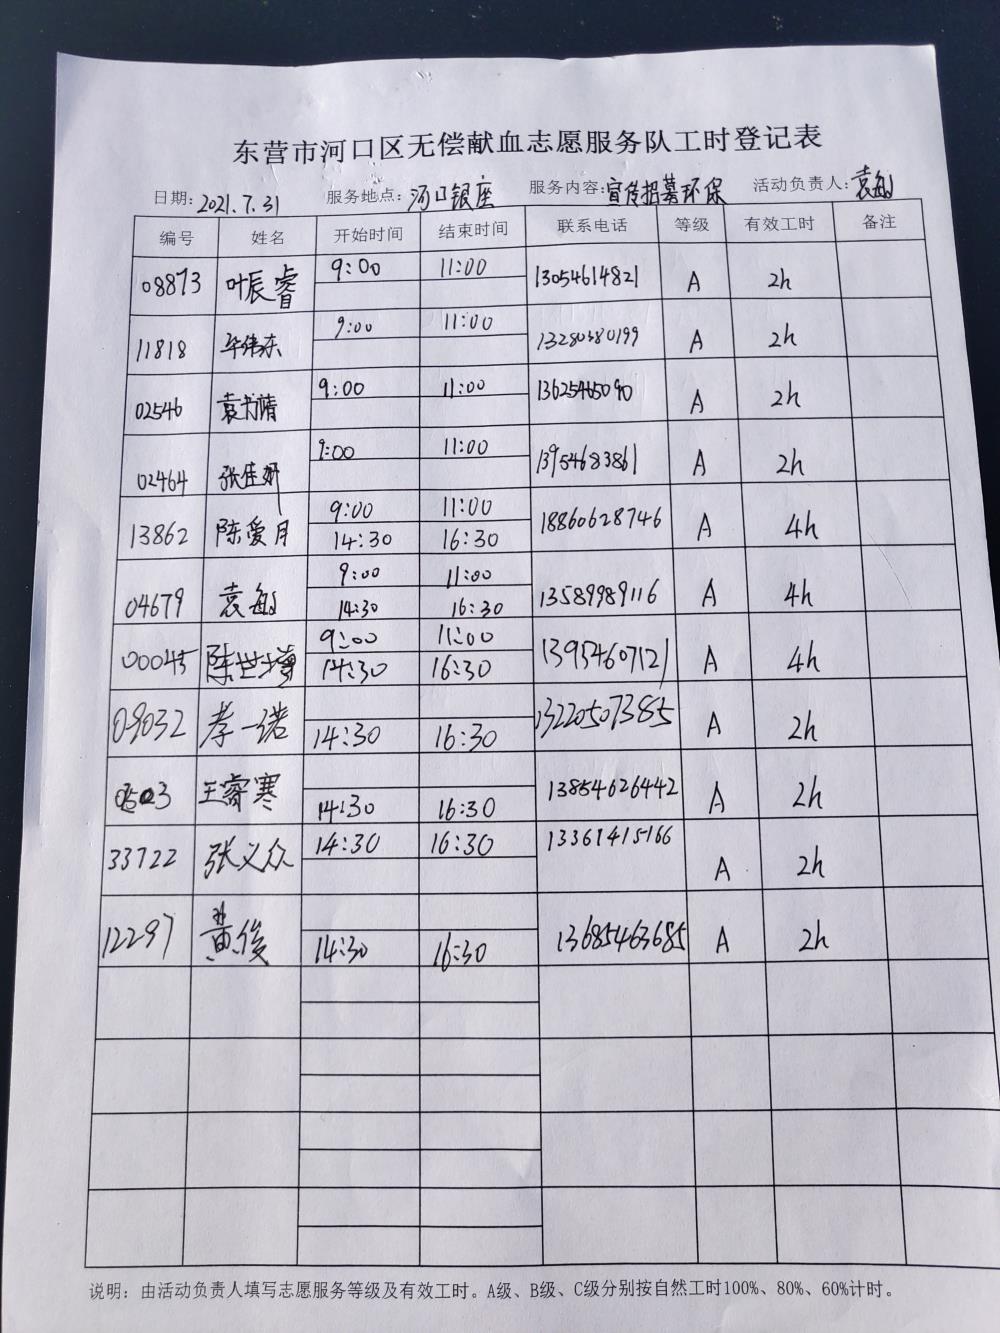 东营市河口区无偿献血志愿服务队工时登记表
日期: 2021.7.31 服务地点: 河口银座 服务内容: 宣传招募环保 活动负责人: 袁敏
编号 姓名 开始时间 结束时间 联系电话 等级 有效工时 备注
08873 叶辰睿 9:00 11:00 13054614821 A 2h
11818 毕伟东 9:00 11:00 13280380199 A 2h
02546 袁书晴 9:00 11:00 13625465090 A 2h
02464 张佳妍 9:00 11:00 13954683861 A 2h
13862 陈爱月 9:00 11:00 18860628746 A 4h
14:30 16:30
04679 袁敏 9:00 11:00 13589989116 A 4h
14:30 16:30
00045 陈世增 9:00 11:00 13954607121 A 4h
14:30 16:30
09032 李一诺 14:30 16:30 13220507385 A 2h
王睿寒 14:30 16:30 13854626442 A 2h
33722 张义众 14:30 16:30 13361415166 A 2h
12297 黄俊 14:30 16:30 13685463685 A 2h
说明: 由活动负责人填写志愿服务等级及有效工时。A级、B级、C级分别按自然工时100%、80%、60%计时。